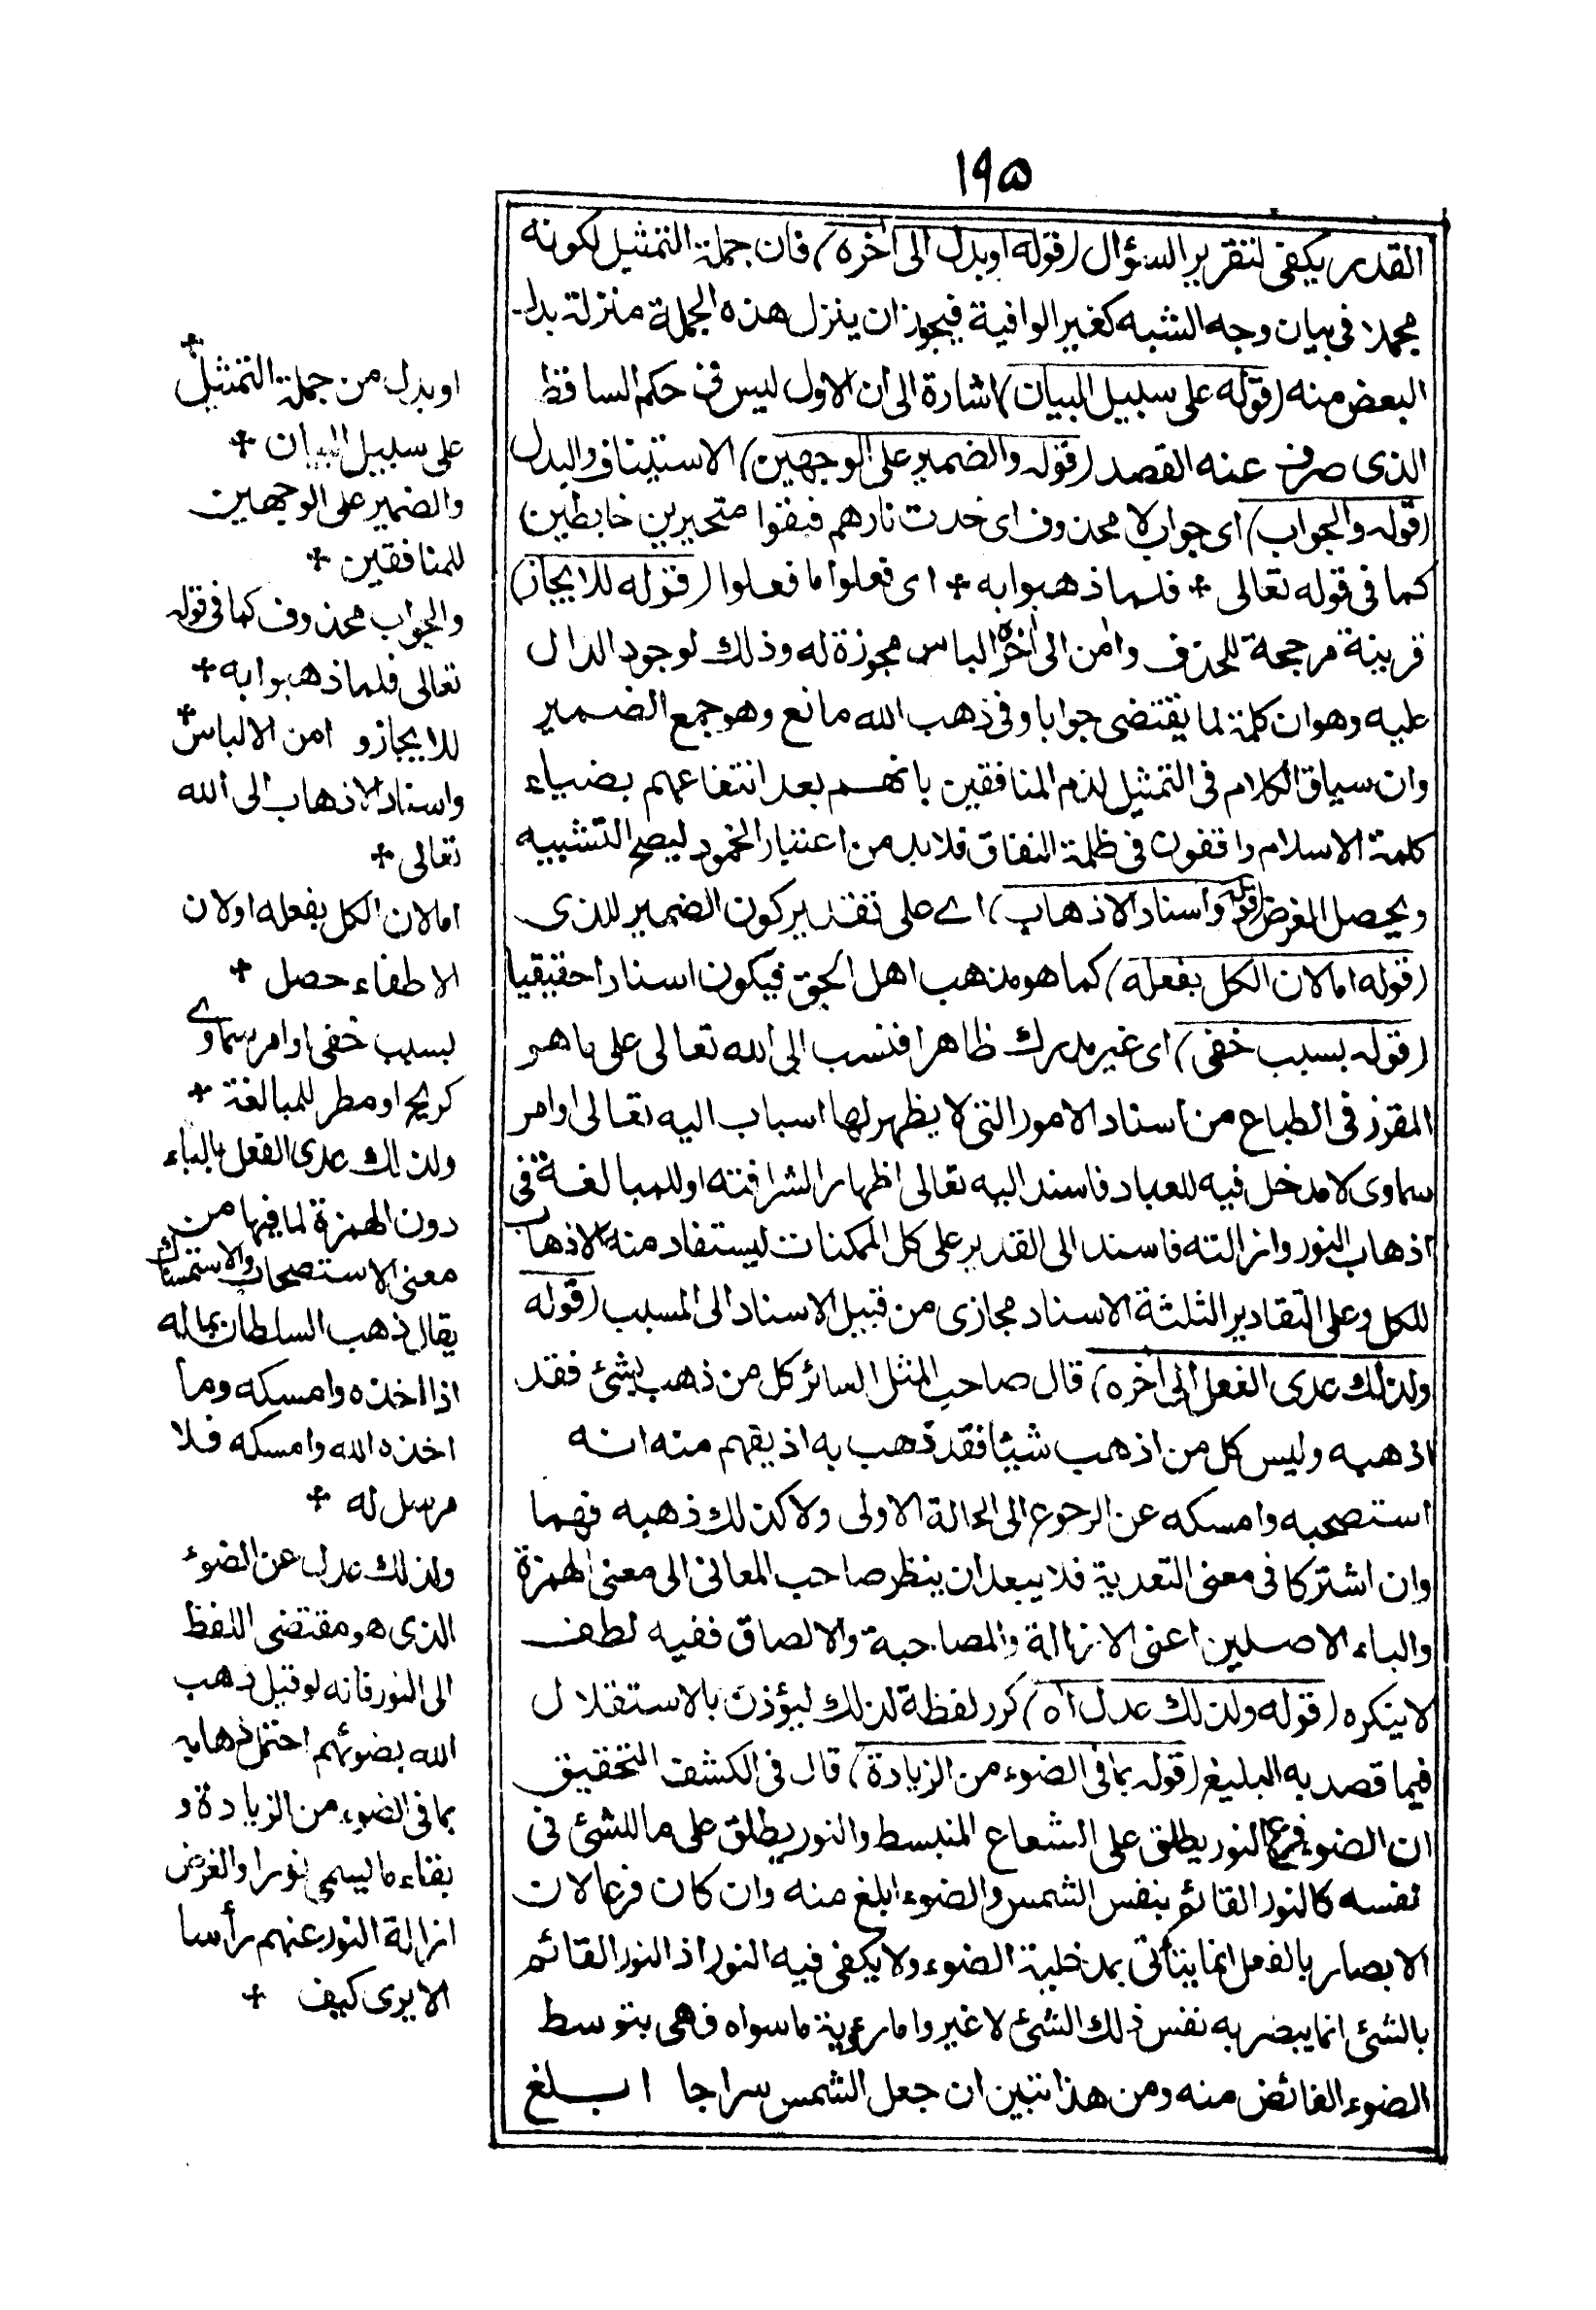 ١٩٥
القدر يكفى لتقرير السؤال (قوله او بدل الى اخره) فان جملة التمثيل لكونه
مجملا فى بيان وجه الشبه كغير الوافية فيجوز ان ينزل هذه الجملة منزلة بدل
البعض منه (قوله على سبيل البيان) اشارة الى ان الاول ليس فى حكم الساقط
الذى صرف عنه القصد (قوله والضمير على الوجهين) الاستيناف والبدل
(قوله والجواب) اى جواب لما محذوف اى خمدت نارهم فبقوا متحيرين خابطين
كما فى قوله تعالى + فلما ذهبوا به + اى فعلوا ما فعلوا (قوله للايجاز)
قرينة مرجحة للحذف وامن الى اخره الباس مجوزة له وذلك لوجود الدال
عليه وهو ان كلمة لما يقتضى جوابا وفى ذهب الله مانع وهو جمع الضمير
وان سياق الكلام فى التمثيل لذم المنافقين بانهم بعد انتفاعهم بضياء
كلمة الاسلام واقفون فى ظلمة النفاق فلا بد من اعتبار الخمود ليصح التشبيه
ويحصل الغرض (قوله واسناد الاذهاب) اے على تقدير كون الضمير للذى
(قوله اما لان الكل بفعله) كما هو مذهب اهل الحق فيكون اسنادا حقيقيا
(قوله بسبب خفى) اى غير مدرك ظاهرا فنسب الى الله تعالى على ما هو
المقرر فى الطباع من اسناد الامور التى لا يظهر لها اسباب اليه تعالى او امر
سماوى لا مدخل فيه للعباد فاسند اليه تعالى اظهارا لشرافته او للمبالغة فى
اذهاب النور وازالته فاسند الى القدير على كل الممكنات ليستفاد منه الاذهاب
للكل وعلى التقادير الثلثة الاسناد مجازى من قبيل الاسناد الى المسبب (قوله
ولذلك عدى الفعل الى اخره) قال صاحب المثل السائر كل من ذهب بشئ فقد
اذهبه وليس كل من اذهب شيئا فقد ذهب به اذ يفهم منه انه
استصحبه وامسكه عن الرجوع الى الحالة الاولى ولا كذلك ذهبه فهما
وان اشتركا فى معنى التعدية فلا يبعد ان ينظر صاحب المعانى الى معنى الهمزة
والباء الاصليين اعنى الازالة والمصاحبة والالصاق ففيه لطف
لا ينكره (قوله ولذلك عدل اه) كرر لفظة لذلك ليؤذن بالاستقلال
فيما قصد به البليغ (قوله بما فى الضوء من الزيادة) قال فى الكشف التحقيق
ان الضوء فرع النور يطلق على الشعاع المنبسط والنور يطلق على ما للشئ فى
نفسه كالنور القائم بنفس الشمس والضوء ابلغ منه وان كان فرعا لان
الابصار بالفعل انما يتأتى بمدخلية الضوء ولا يكفى فيه النور اذ النور القائم
بالشئ انما يبصر به نفس ذلك الشئ لا غير واما رؤية ما سواه فهى بتوسط
الضوء الفائض منه ومن هذا تبين ان جعل الشمس سراجا ابلغ
او بدل من جملة التمثيل +
على سبيل البيان +
والضمير على الوجهين
للمنافقين +
والجواب محذوف كما فى قوله
تعالى فلما ذهبوا به +
للايجاز و امن الالباس +
واسناد الاذهاب الى الله
تعالى +
اما لان الكل بفعله او لان
الاطفاء حصل +
بسبب خفى او امر سماوے
كريح او مطر للمبالغة +
ولذلك عدى الفعل بالباء
دون الهمزة لما فيها من
معنى الاستصحاب والاستمساك
يقال ذهب السلطان بماله
اذا اخذه وامسكه وما
اخذه الله وامسكه فلا
مرسل له +
ولذلك عدل عن الضوء
الذى هو مقتضى اللفظ
الى النور فانه لو قيل ذهب
الله بضوئهم احتمل ذهابه
بما فى الضوء من الزيادة و
بقاء ما يسمى نورا والغرض
ازالة النور عنهم رأسا
الا يرى كيف +